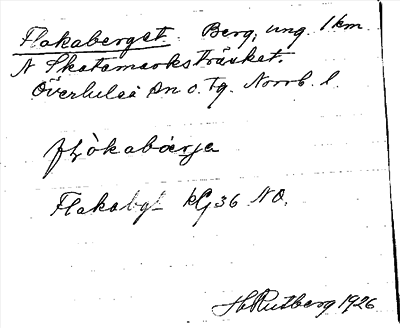 Flakaberget. Berg, ung. 1 km
N Skatamarksträsket.
Överluleå sn o. tg. Norrb. l.
Flakabgt kG36 NO.
H Rutberg 1926